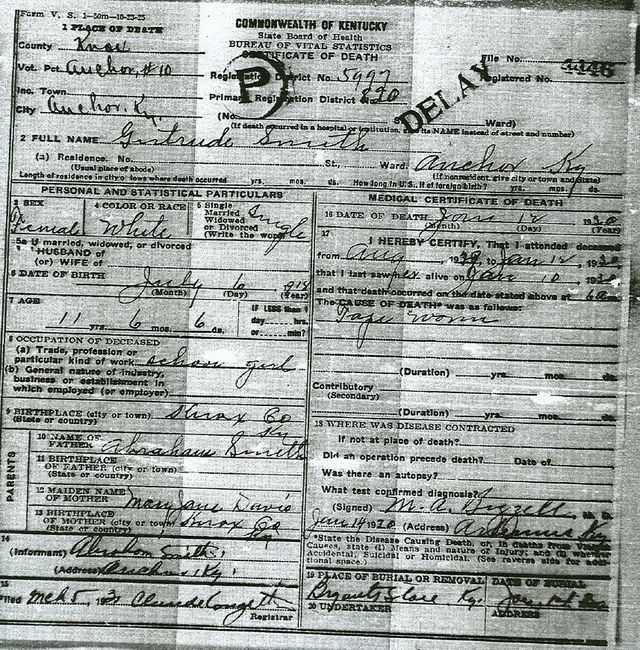 Form V. S. 1-50m-10-23-25
COMMONWEALTH OF KENTUCKY
State Board of Health
BUREAU OF VITAL STATISTICS
CERTIFICATE OF DEATH
1 PLACE OF DEATH
County Knox
Vot. Pct. Anchor, #10
Inc. Town
City Anchor, Ky.
Registration District No. 5997
Primary Registration District No.
File No.
Registered No.
P
DELAY
(No. Ward)
(If death occurred in a hospital or institution, give its NAME instead of street and number)
2 FULL NAME Gertrude Smith
(a) Residence. No. St., Ward. Anchor Ky
(Usual place of abode) (If nonresident give city or town and State)
Length of residence in city or town where death occurred yrs. mos. ds. How long in U.S., if of foreign birth? yrs. mos. ds.
PERSONAL AND STATISTICAL PARTICULARS
3 SEX
Female
4 COLOR OR RACE
White
5 Single
Married
Widowed
or Divorced
(Write the word)
Single
5a If married, widowed, or divorced
HUSBAND of
(or) WIFE of
6 DATE OF BIRTH July 6
(Month) (Day) (Year)
7 AGE
11 yrs. 6 mos. 6 ds.
IF LESS than 1
day hrs.
or min?
8 OCCUPATION OF DECEASED
(a) Trade, profession or
particular kind of work school girl
(b) General nature of industry,
business or establishment in
which employed (or employer)
9 BIRTHPLACE (city or town) Knox Co
(State or country) Ky
PARENTS
10 NAME OF
FATHER Abraham Smith
11 BIRTHPLACE
OF FATHER (city or town)
(State or country)
12 MAIDEN NAME
OF MOTHER Mary Jane Davis
13 BIRTHPLACE
OF MOTHER (city or town) Knox Co
(State or country) Ky
14
(Informant) Abraham Smith
(Address) Anchor, Ky.
15
Filed Mch 5, Claude
Registrar
MEDICAL CERTIFICATE OF DEATH
16 DATE OF DEATH Jan 12 1930
(Month) (Day) (Year)
17
I HEREBY CERTIFY, That I attended deceased
from Aug , to Jan 12, 1930
that I last saw her alive on Jan 10, 1930
and that death occurred on the date stated above at
The CAUSE OF DEATH* was as follows:
Tape worm
(Duration) yrs. mos. ds.
Contributory
(Secondary)
(Duration) yrs. mos. ds.
18 WHERE WAS DISEASE CONTRACTED
If not at place of death?
Did an operation precede death? Date of
Was there an autopsy?
What test confirmed diagnosis?
(Signed) M. A. M. D.
Jan 14 1930 (Address) Ky
*State the Disease Causing Death, or, in deaths from Violent
Causes, state (1) Means and nature of Injury; and (2) whether
Accidental, Suicidal or Homicidal. (See reverse side for additional space.)
19 PLACE OF BURIAL OR REMOVAL
DATE OF BURIAL
Ky. Jan.
20 UNDERTAKER
ADDRESS